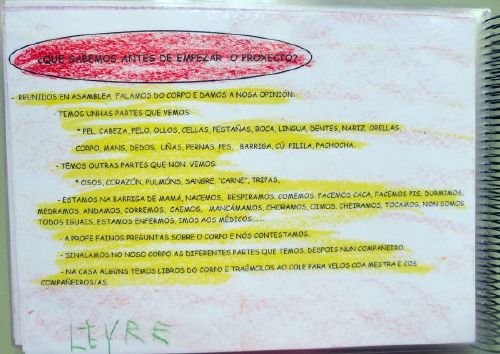 ¿QUE SABEMOS ANTES DE EMPEZAR O PROXECTO?
- REUNIDOS EN ASAMBLEA FALAMOS DO CORPO E DAMOS A NOSA OPINIÓN:
- TEMOS UNHAS PARTES QUE VEMOS:
* PEL, CABEZA, PELO, OLLOS, CELLAS, PESTAÑAS, BOCA, LINGUA, DENTES, NARIZ, ORELLAS,
CORPO, MANS, DEDOS, UÑAS, PERNAS, PES, BARRIGA, CÚ, PILILA, PACHOCHA,
- TEMOS OUTRAS PARTES QUE NON VEMOS:
* OSOS, CORAZÓN, PULMÓNS, SANGRE, "CARNE", TRIPAS,
- ESTAMOS NA BARRIGA DE MAMÁ, NACEMOS, RESPIRAMOS, COMEMOS, FACEMOS CACA, FACEMOS PIS, DURMIMOS,
MEDRAMOS, ANDAMOS, CORREMOS, CAEMOS, MANCÁMANOS, CHORAMOS, OIMOS, CHEIRAMOS, TOCAMOS, NON SOMOS
TODOS IGUAIS, ESTAMOS ENFERMOS, IMOS AOS MÉDICOS......
- A PROFE FAINOS PREGUNTAS SOBRE O CORPO E NÓS CONTESTAMOS.
- SINALAMOS NO NOSO CORPO AS DIFERENTES PARTES QUE TEMOS, DESPOIS NUN COMPAÑEIRO.
- NA CASA ALGÚNS TEMOS LIBROS DO CORPO E TRAÉMOLOS AO COLE PARA VELOS COA MESTRA E COS
COMPAÑEIROS/AS.
LEYRE